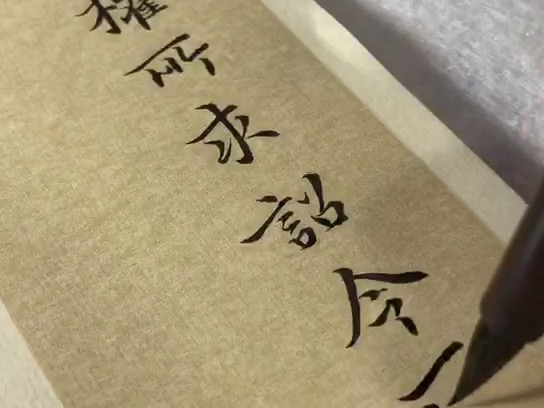 權所求詔令